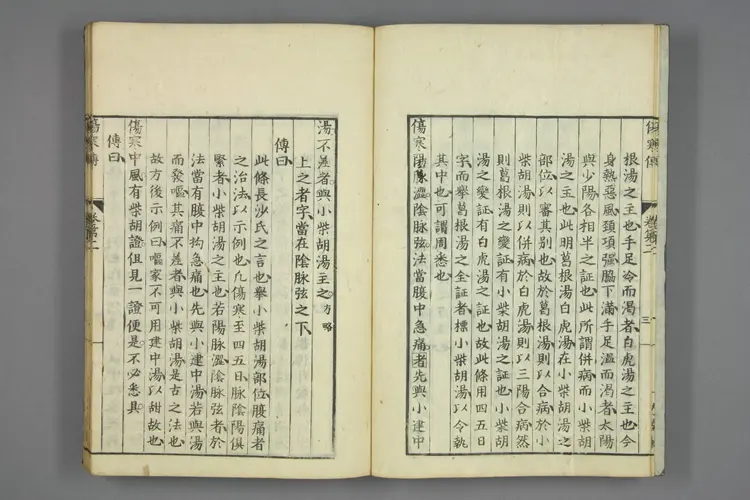 傷寒傳
卷第二
三
根湯之主也手足冷而渴者白虎湯之主也今
身熱惡風頸項强脇下滿手足溫而渴者太陽
與少陽各相半之証也此所謂併病而小柴胡
湯之主也此明葛根湯白虎湯在小柴胡湯之
部位以審其別也故於葛根湯則以合病於小
柴胡湯則以併病於白虎湯則以三陽合病然
則葛根湯之變証有小柴胡湯之証也小柴胡
湯之變証有白虎湯之証也故此條用四五日
字而舉葛根湯之全証者標小柴胡湯以令執
其中也可謂周悉也
傷寒陽脉澀陰脉弦法當腹中急痛者先與小建中
湯不差者與小柴胡湯主之方略
上之者字當在陰脉弦之下
傳曰
此條長沙氏之言也舉小柴胡湯部位腹痛者
之治法以示例也凡傷寒至四五日脉陰陽俱
緊者小柴胡湯之主也若陽脉澀陰脉弦者於
法當有腹中拘急痛也先與小建中湯若與湯
而發嘔其痛不差者與小柴胡湯是古之法也
故方後示例曰嘔家不可用建中湯以甜故也
傷寒中風有柴胡證但見一證便是不必悉具
傳曰
傷寒傳
卷第二